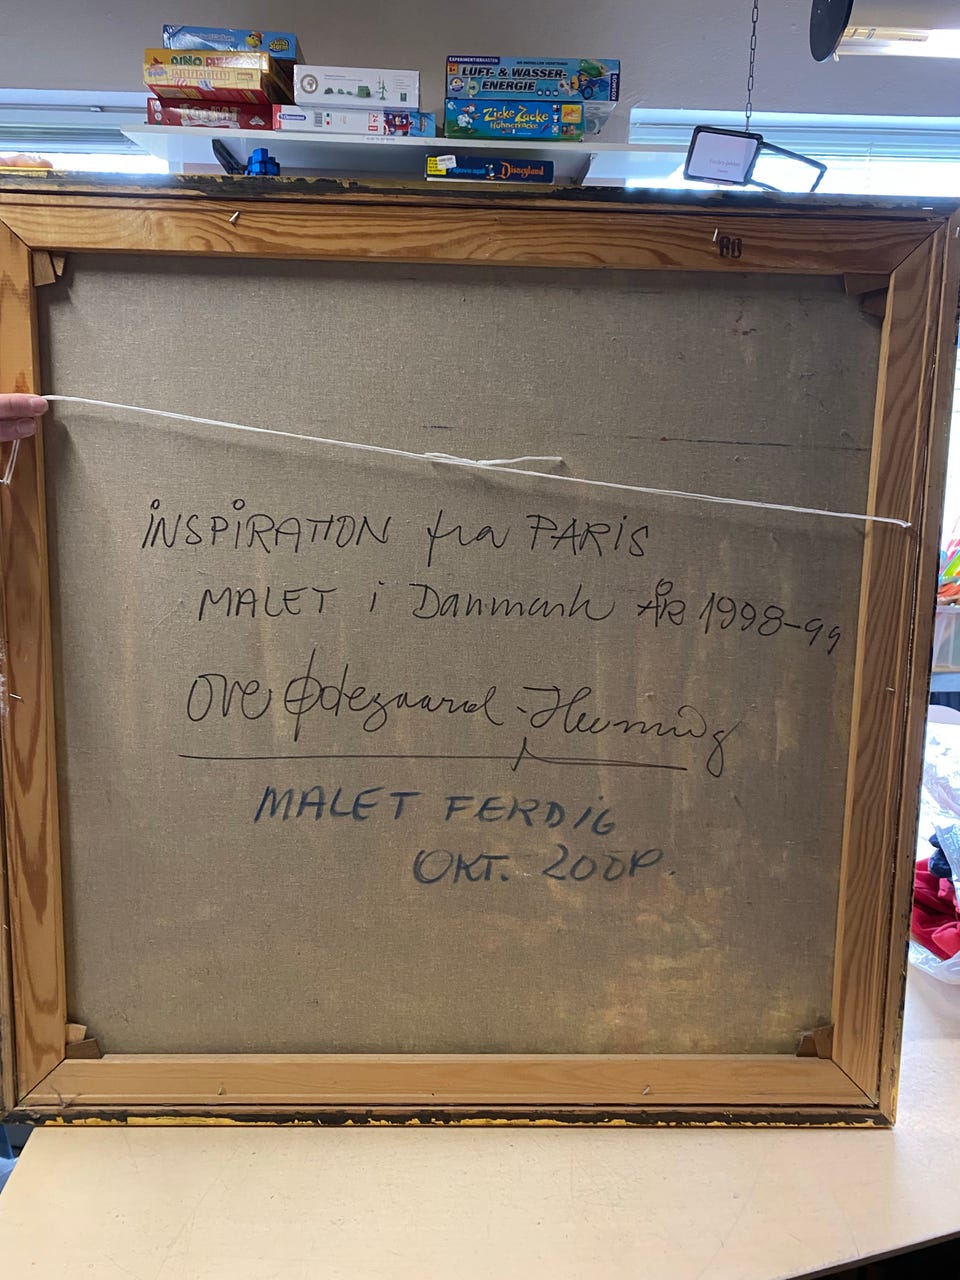 EXPERIMENTIERKASTEN
LUFT- & WASSER-
ENERGIE
KOSMOS
Zicke Zacke
Hühnerkacke
Disneyland
80
INSPIRATION fra PARIS
MALET i Danmark ÅR 1998-99
Ove Ødegaard-Henning
MALET FERDIG
OKT. 200P.